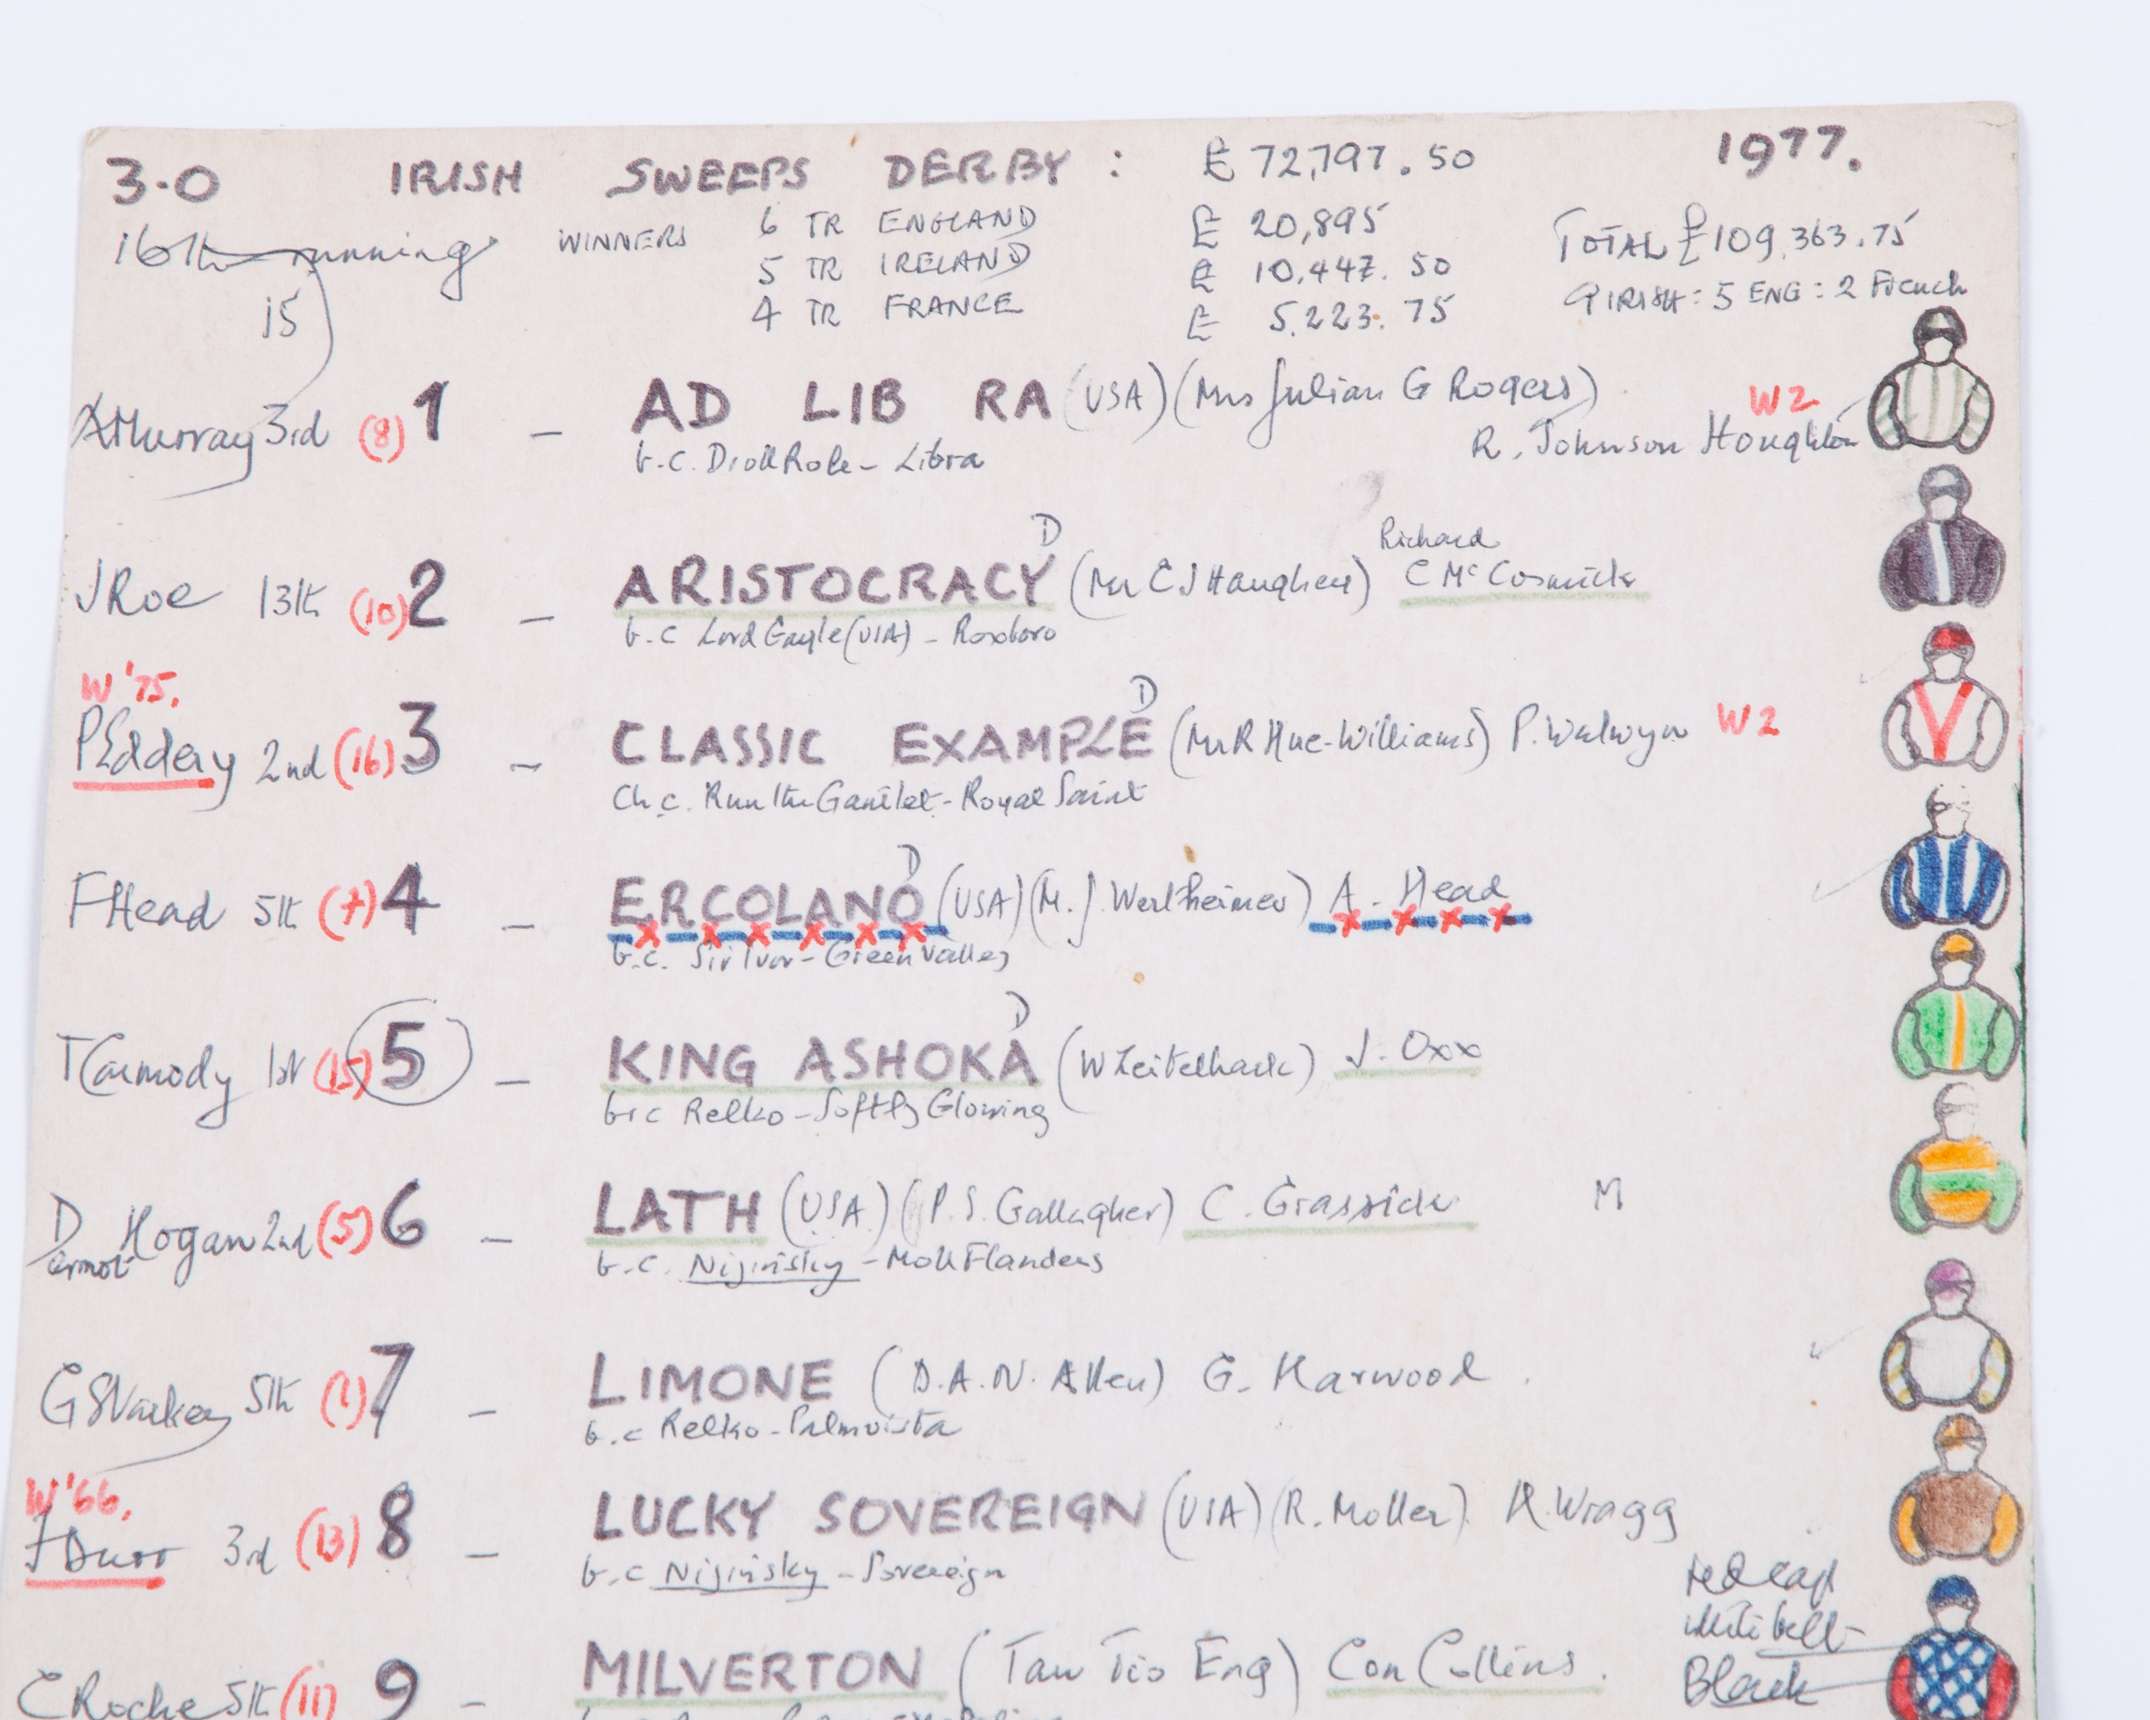 3.0 IRISH SWEEPS DERBY : £ 72,797.50 1977.
16th running WINNERS 6 TR ENGLAND £ 20,895 TOTAL £109,363.75
15 5 TR IRELAND £ 10,447.50 9 IRISH : 5 ENG : 2 French
4 TR FRANCE £ 5,223.75
A Murray 3rd (8) 1 – AD LIB RA (USA) (Mrs Julian G Rogers) W2
b.c. Droll Role – Libra R. Johnson Houghton
D Richard
J Roe 13th (10) 2 – ARISTOCRACY (Mr C J Haughey) C McCormick
b.c Lord Gayle (USA) – Roxboro
W '75. D
P Eddery 2nd (16) 3 – CLASSIC EXAMPLE (Mr R Hue-Williams) P. Walwyn W2
Ch c. Run the Gantlet – Royal Saint
D
F Head 5th (7) 4 – ERCOLANO (USA) (M. J. Wertheimer) A. Head
b.c. Sir Ivor – Green Valley
D
T Carmody 1st (15) 5 – KING ASHOKA (W Zeitelhack) J. Oxx
br c Relko – Softly Glowing
Dermot Hogan 2nd (5) 6 – LATH (USA) (P. S. Gallagher) C. Grassick M
b.c. Nijinsky – Moll Flanders
G Starkey 5th (1) 7 – LIMONE (D.A.N. Allen) G. Harwood .
b.c Relko – Palmavista
W '66.
F Durr 3rd (13) 8 – LUCKY SOVEREIGN (USA) (R. Moller) H. Wragg
b.c Nijinsky – Sovereign
red cap
white belt
C Roche 5th (11) 9 – MILVERTON (Taw Tio Eng) Con Collins. Black